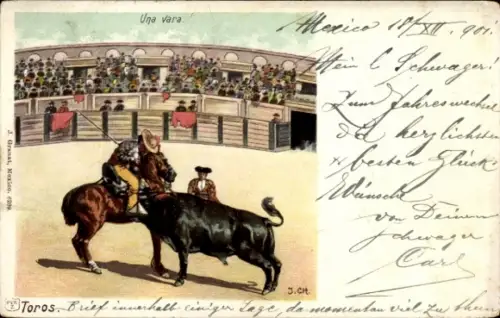 Una vara
Mexico 18/XII. 901.
Mein l. Schwager!
Zum Jahreswechsel
die herzlichsten
& besten Glück-
Wünsche
von Deinem
Schwager
Carl
J. Granat, Mexico.
J.CH.
Toros. Brief innerhalb einiger Tage, da momentan viel zu thun